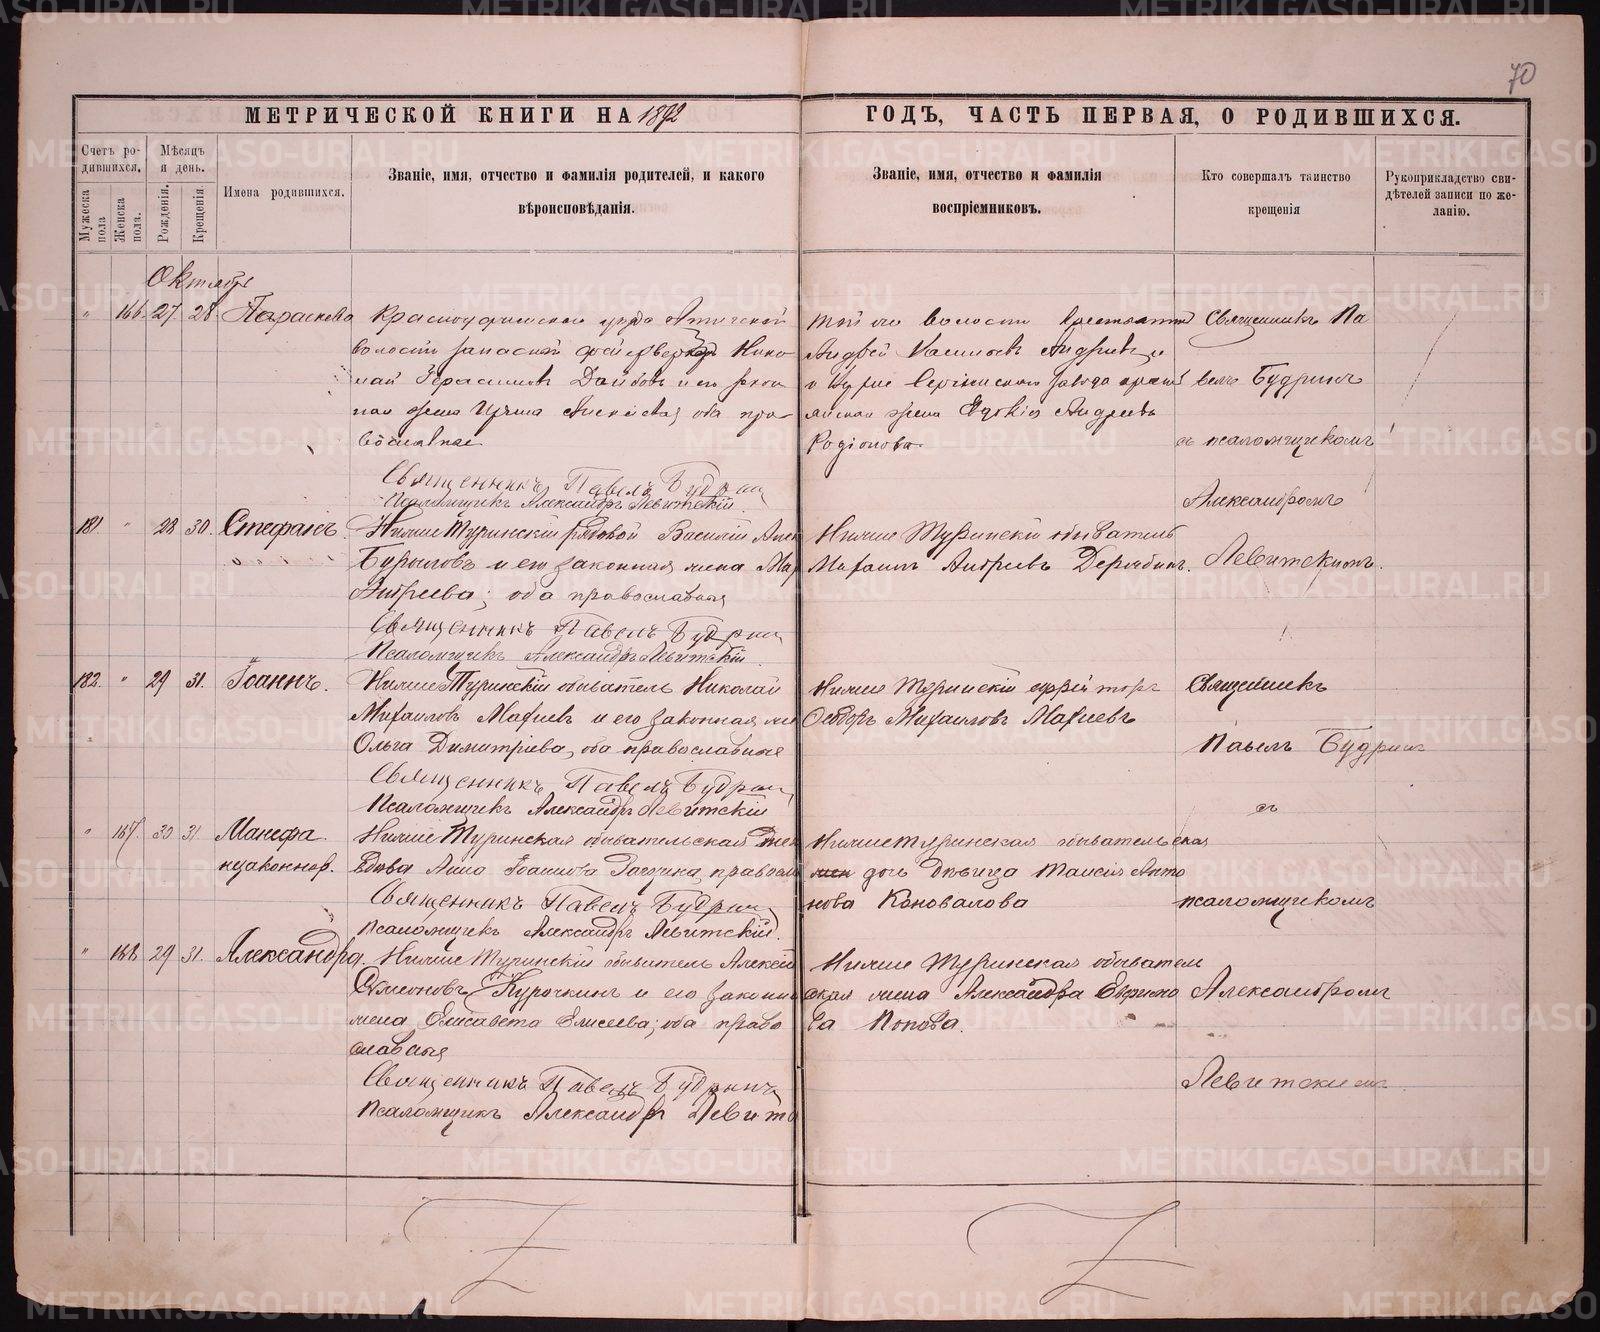 70
МЕТРИЧЕСКОЙ КНИГИ НА 1892 ГОДЪ, ЧАСТЬ ПЕРВАЯ, О РОДИВШИХСЯ.
Счетъ родившихся.
Мужеска пола
Женска пола.
Мѣсяцъ и день.
Рожденія.
Крещенія.
Имена родившихся.
Званіе, имя, отчество и фамилія родителей, и какого
вѣроисповѣданія.
Званіе, имя, отчество и фамилія
воспріемниковъ.
Кто совершалъ таинство
крещенія
Рукоприкладство сви-
дѣтелей записи по же-
ланію.
Октября
" 166. 27. 28. Параскева
Красноуфимскаго уѣзда Ачитской
волости запасной фейерверкеръ Нико-
лай Герасимовъ и его закон
ная жена Ирина Алексѣева, оба пра-
вославные
Священникъ Павелъ Будрин
Псаломщикъ Александръ Левитскій.
той же волости
Андрей Андреевъ
завода
жена Евдокія Андреева
Родіонова.
Священникъ Па
велъ Будринъ
съ псаломщикомъ
Александромъ
Левитскимъ.
181. " 28 30. Стефанъ.
Нижне Туринскій рядовой Василій Алек
Бурыловъ и его законная жена Мар
Андреева; оба православныя
Священникъ Павелъ Будрин
Псаломщикъ Александръ Левитскій.
Нижне Туринскій обыватель
Михаилъ Андреевъ Дерябинъ.
182. " 29 31. Іоаннъ.
Нижне Туринскій обыватель Николай
Михаиловъ Матеевъ и его законная же
Ольга Димитріева, оба православные
Священникъ Павелъ Будрин
Псаломщикъ Александръ Левитскій
Нижне Туринскій
Ѳеодоръ Михаиловъ Матеевъ
Священникъ
Павелъ Будринъ
съ
" 167. 30 31. Манефа.
незаконнор.
Нижне Туринская обывательская
Вдова Анна Іоаннова правосл
Священникъ Павелъ Будрин
Псаломщикъ Александръ Левитскій.
Нижнетуринская обывательская
дочь Дѣвица Таисія Анто
нова Коновалова
псаломщикомъ
" 168. 29 31. Александра.
Нижне Туринскій обыватель Алексѣй
Симеоновъ Курочкинъ и его законн
жена Елисавета Елисеева; оба право
славныя
Священникъ Павелъ Будринъ
Псаломщикъ Александръ Левитс
Нижне Туринская обыватель
ская жена Александра Ефимо
ва Попова.
Александромъ
Левитскимъ
METRIKI.GASO-URAL.RU